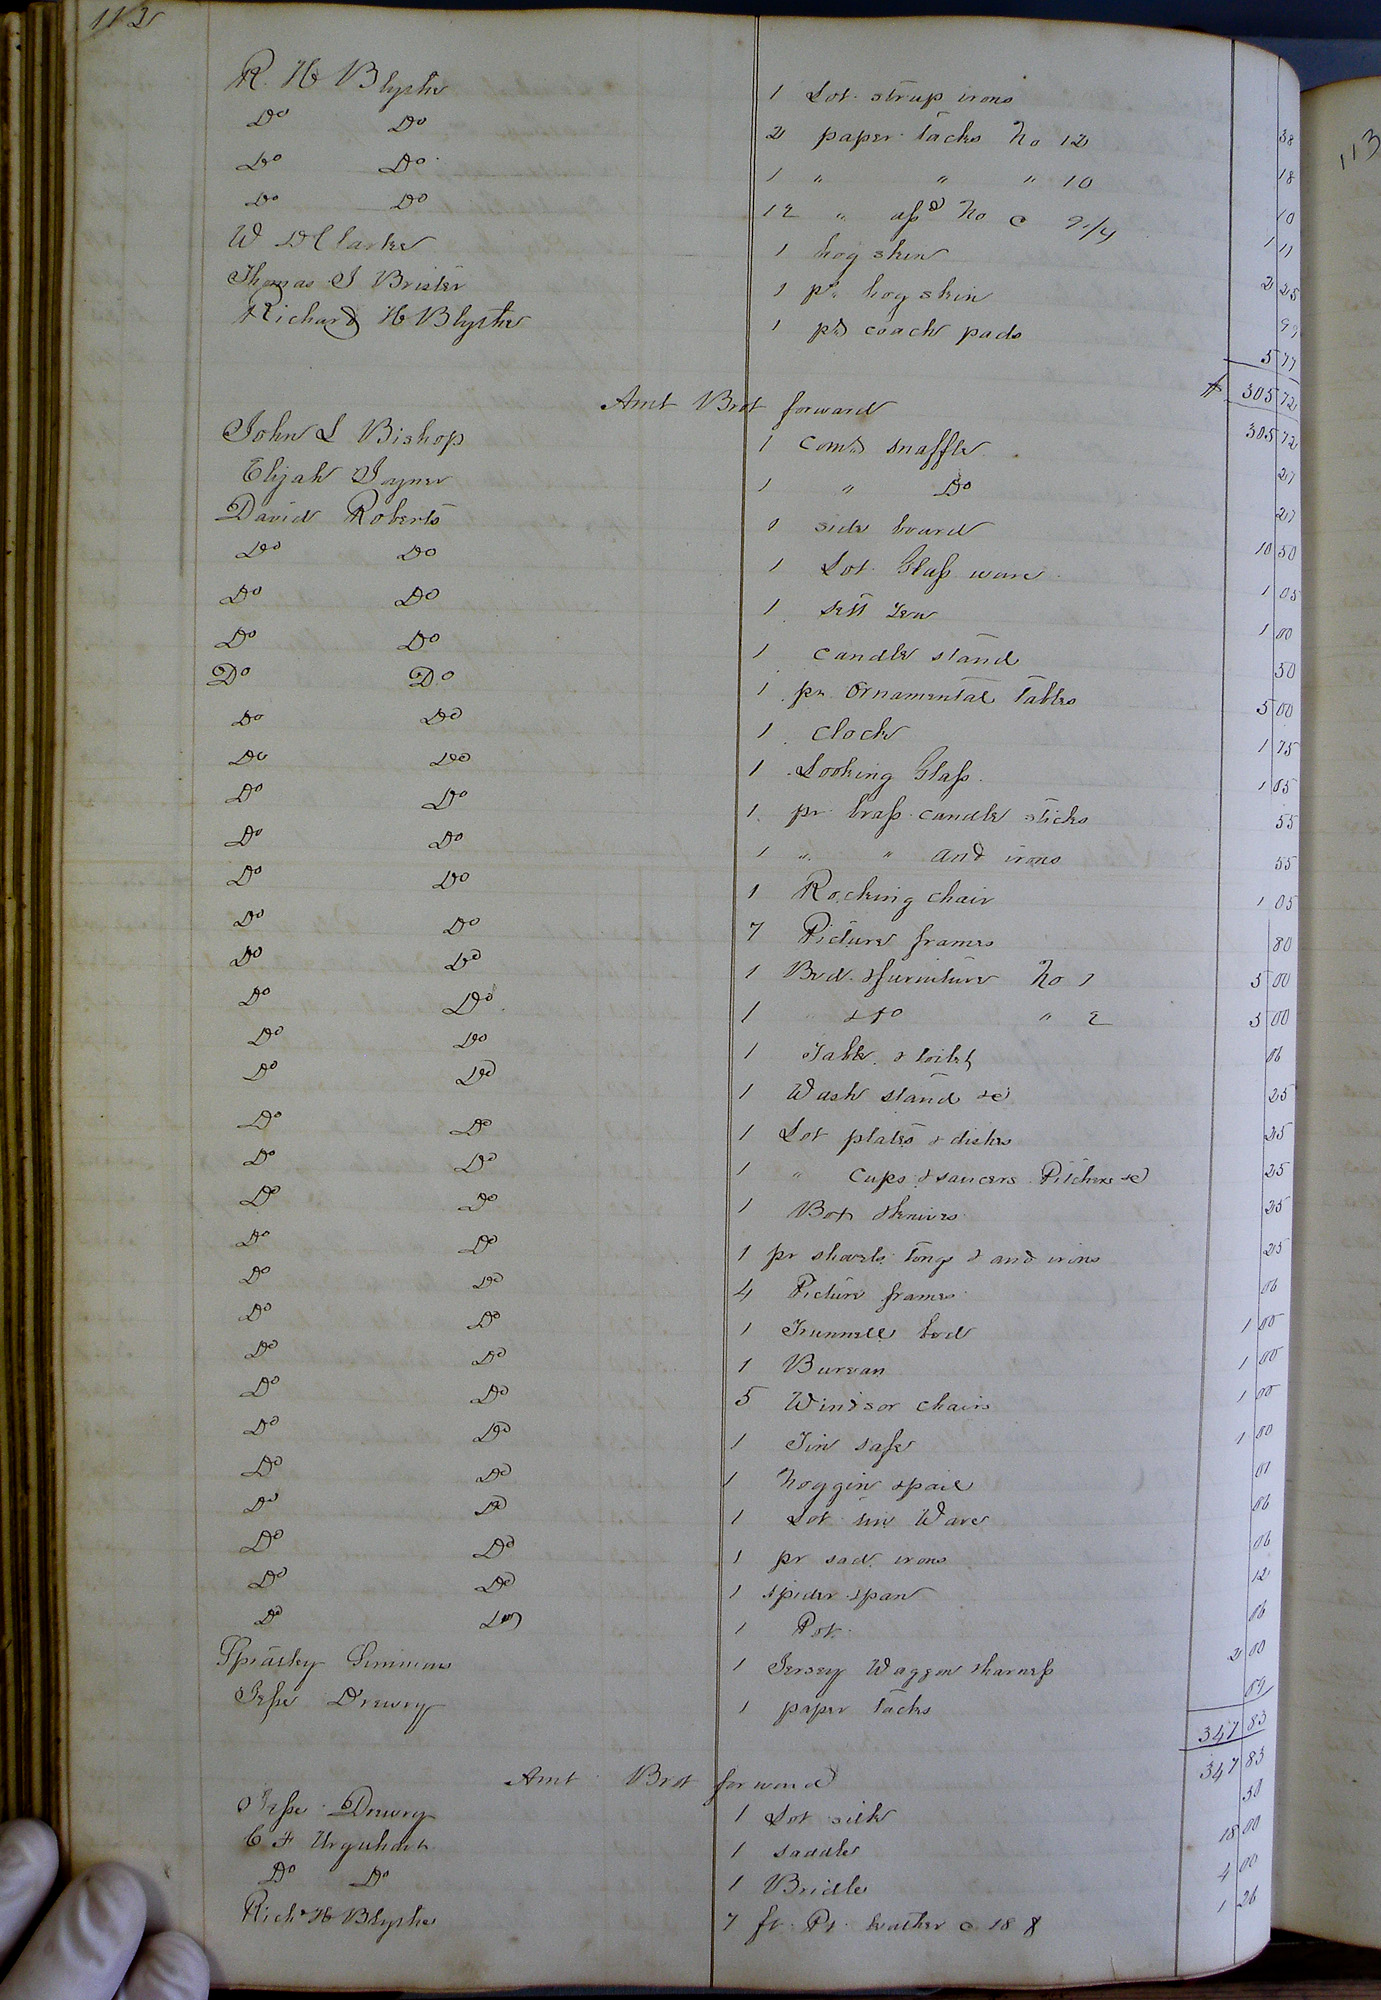 112
R. H Blythe 1 Lot strup irons 38
Do Do 2 paper tacks No 12 18
Do Do 1 " " " 10 10
Do Do 12 " assd No @ 9 1/4 1 11
W D Clarke 1 hog skin 2 25
Thomas J Brister 1 pr. hog skin 99
Richard H Blythe 1 prs coach pads 5 77
$ 305 72
Amt Brot forward 305 72
John L Bishop 1 comd snaffle 27
Elijah Joyner 1 " Do 27
David Roberts 1 side board 10 50
Do Do 1 Lot Glass ware 1 05
Do Do 1 sett Tea 1 00
Do Do 1 candle stand 50
Do Do 1 pr. Ornamental tables 5 00
Do Do 1 clock 1 75
Do Do 1 Looking Glass 1 05
Do Do 1 pr brass candle sticks 55
Do Do 1 " " and irons 55
Do Do 1 Rocking chair 1 05
Do Do 7 Picture frames 80
Do Do 1 Bed &furniture No 1 5 00
Do Do 1 " &fo " 2 5 00
Do Do 1 Table & toilet 06
Do Do 1 Wash stand &c 25
Do Do 1 Lot plates & dishes 25
Do Do 1 " cups & saucers Pitchers &c 25
Do Do 1 Box &knives 25
Do Do 1 pr shovels tongs & and irons 25
Do Do 4 Picture frames 06
Do Do 1 Trunnell bed 1 00
Do Do 1 Bureau 1 00
Do Do 5 Windsor chairs 1 00
Do Do 1 Tin safe 1 00
Do Do 1 noggin &pail 01
Do Do 1 Lot tin Ware 06
Do Do 1 pr sad irons 06
Do Do 1 spider &pan 12
Do Do 1 Pot 06
Spratley Simmons 1 Jersey Waggon &harness 2 00
Jesse Drewry 1 paper tacks 09
347 83
Amt Brot forward 347 83
Jesse Drewry 1 Lot silk 50
C F Urquhart 1 saddle 18 00
Do Do 1 Bridle 4 00
Richd H Blythe 7 ft Pt leather @ 18 1 26
113